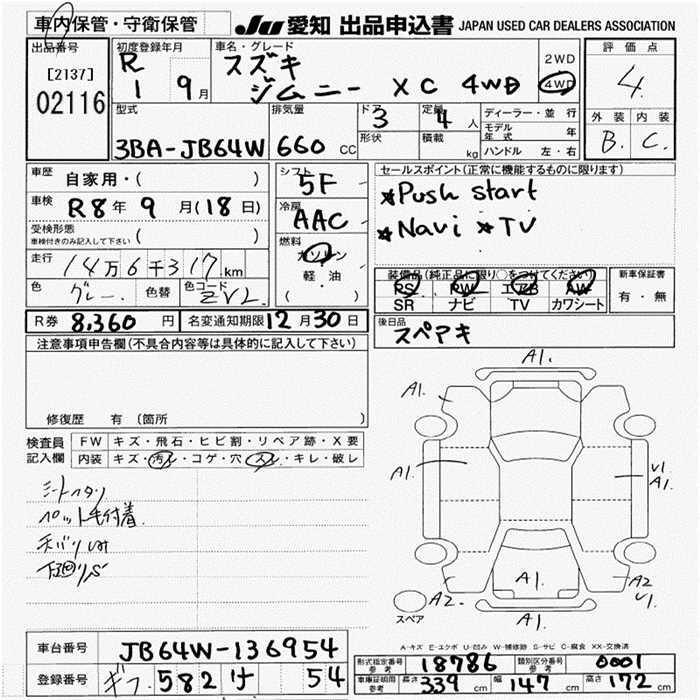 車内保管・守衛保管
JU 愛知 出品申込書 JAPAN USED CAR DEALERS ASSOCIATION
出品番号
[2137]
02116
初度登録年月
R
1 9月
車名・グレード
スズキ
ジムニー XC 4WD
2WD
4WD
評価点
4.
外装 内装
B. C.
型式
3BA-JB64W
排気量
660 CC
ドア
3
形状
定員
4 人
積載
kg
ディーラー・並行
モデル年式 年
ハンドル 左・右
車歴 自家用・( )
車検 R8年9月(18日)
受検形態
車検付きのみ記入して下さい ( )
走行 14万6千317km
色 グレー. 色替 色コード ZVL
シフト
5F
冷房
AAC
燃料
ガソリン
軽・油
( )
セールスポイント(正常に機能するものに限ります)
*Push start
*Navi *TV
装備品(純正品に限り○をつけてください)
PS PW エアB AW
SR ナビ TV カワシート
新車保証書
有・無
R券 8,360円 名変通知期限 12月30日
後日品
スペアキ
注意事項申告欄(不具合内容等は具体的に記入して下さい)
修復歴 有〔箇所 〕
検査員記入欄
FW キズ・飛石・ヒビ割・リペア跡・X要
内装 キズ・汚レ・コゲ・穴・スレ・キレ・破レ
シートヘタリ
ペット毛付着
下回りS
A1.
A1.
A1.
A1.
U1
A1.
A1.
A2.
A2
U1.
A1.
スペア
A-キズ E-エクボ U-凹み W-補修跡 S-サビ C-腐食 XX-交換済
車台番号 JB64W-136954
登録番号 ギフ 582 け 54
形式指定番号 参考 18786 類別区分番号 参考 0001
車庫証明用 参考 長さ 339 cm 幅 147 cm 高さ 172 cm